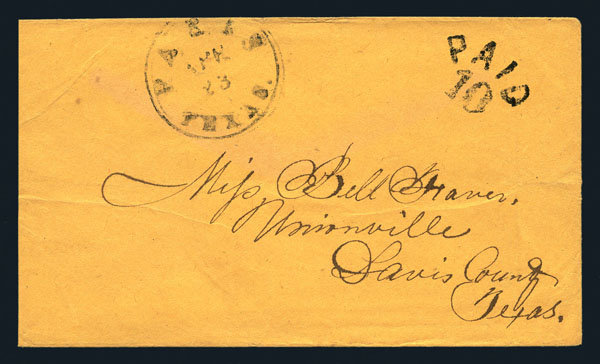 PARIS
23
TEXAS.
PAID
10
Miss Bell
Unionville
Davis County
Texas.